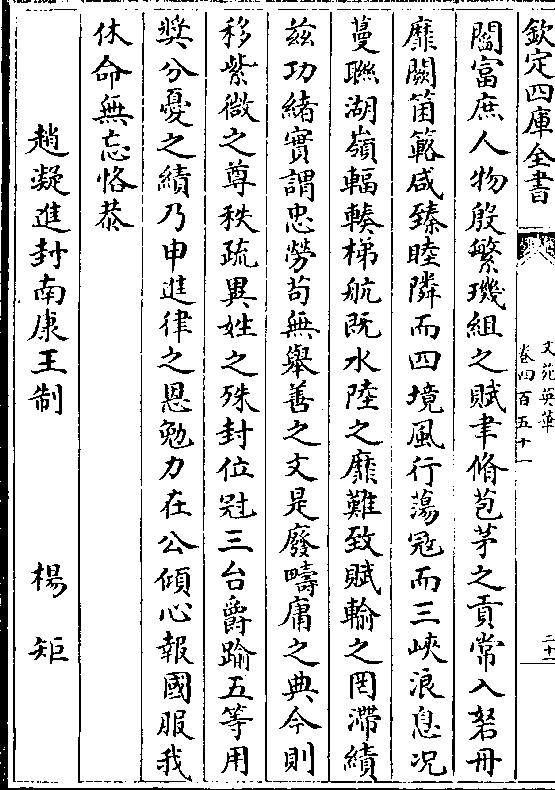 欽定四庫全書
文苑英華
卷四百五十一
二十二
閫富庶人物殷繁璣組之賦聿脩苞茅之貢常入砮丹
靡闕箘簵咸臻睦隣而四境風行蕩冦而三峽浪息况
蔓聮湖嶺輻輳梯航既水陸之靡難致賦輸之罔滯績
兹功緒實謂忠勞茍無舉善之文是廢疇庸之典今則
移紫微之尊秩疏異姓之殊封位冠三台爵踰五等用
奬分憂之績乃申進律之恩勉力在公傾心報國服我
休命無忘恪恭
趙凝進封南康王制 楊矩